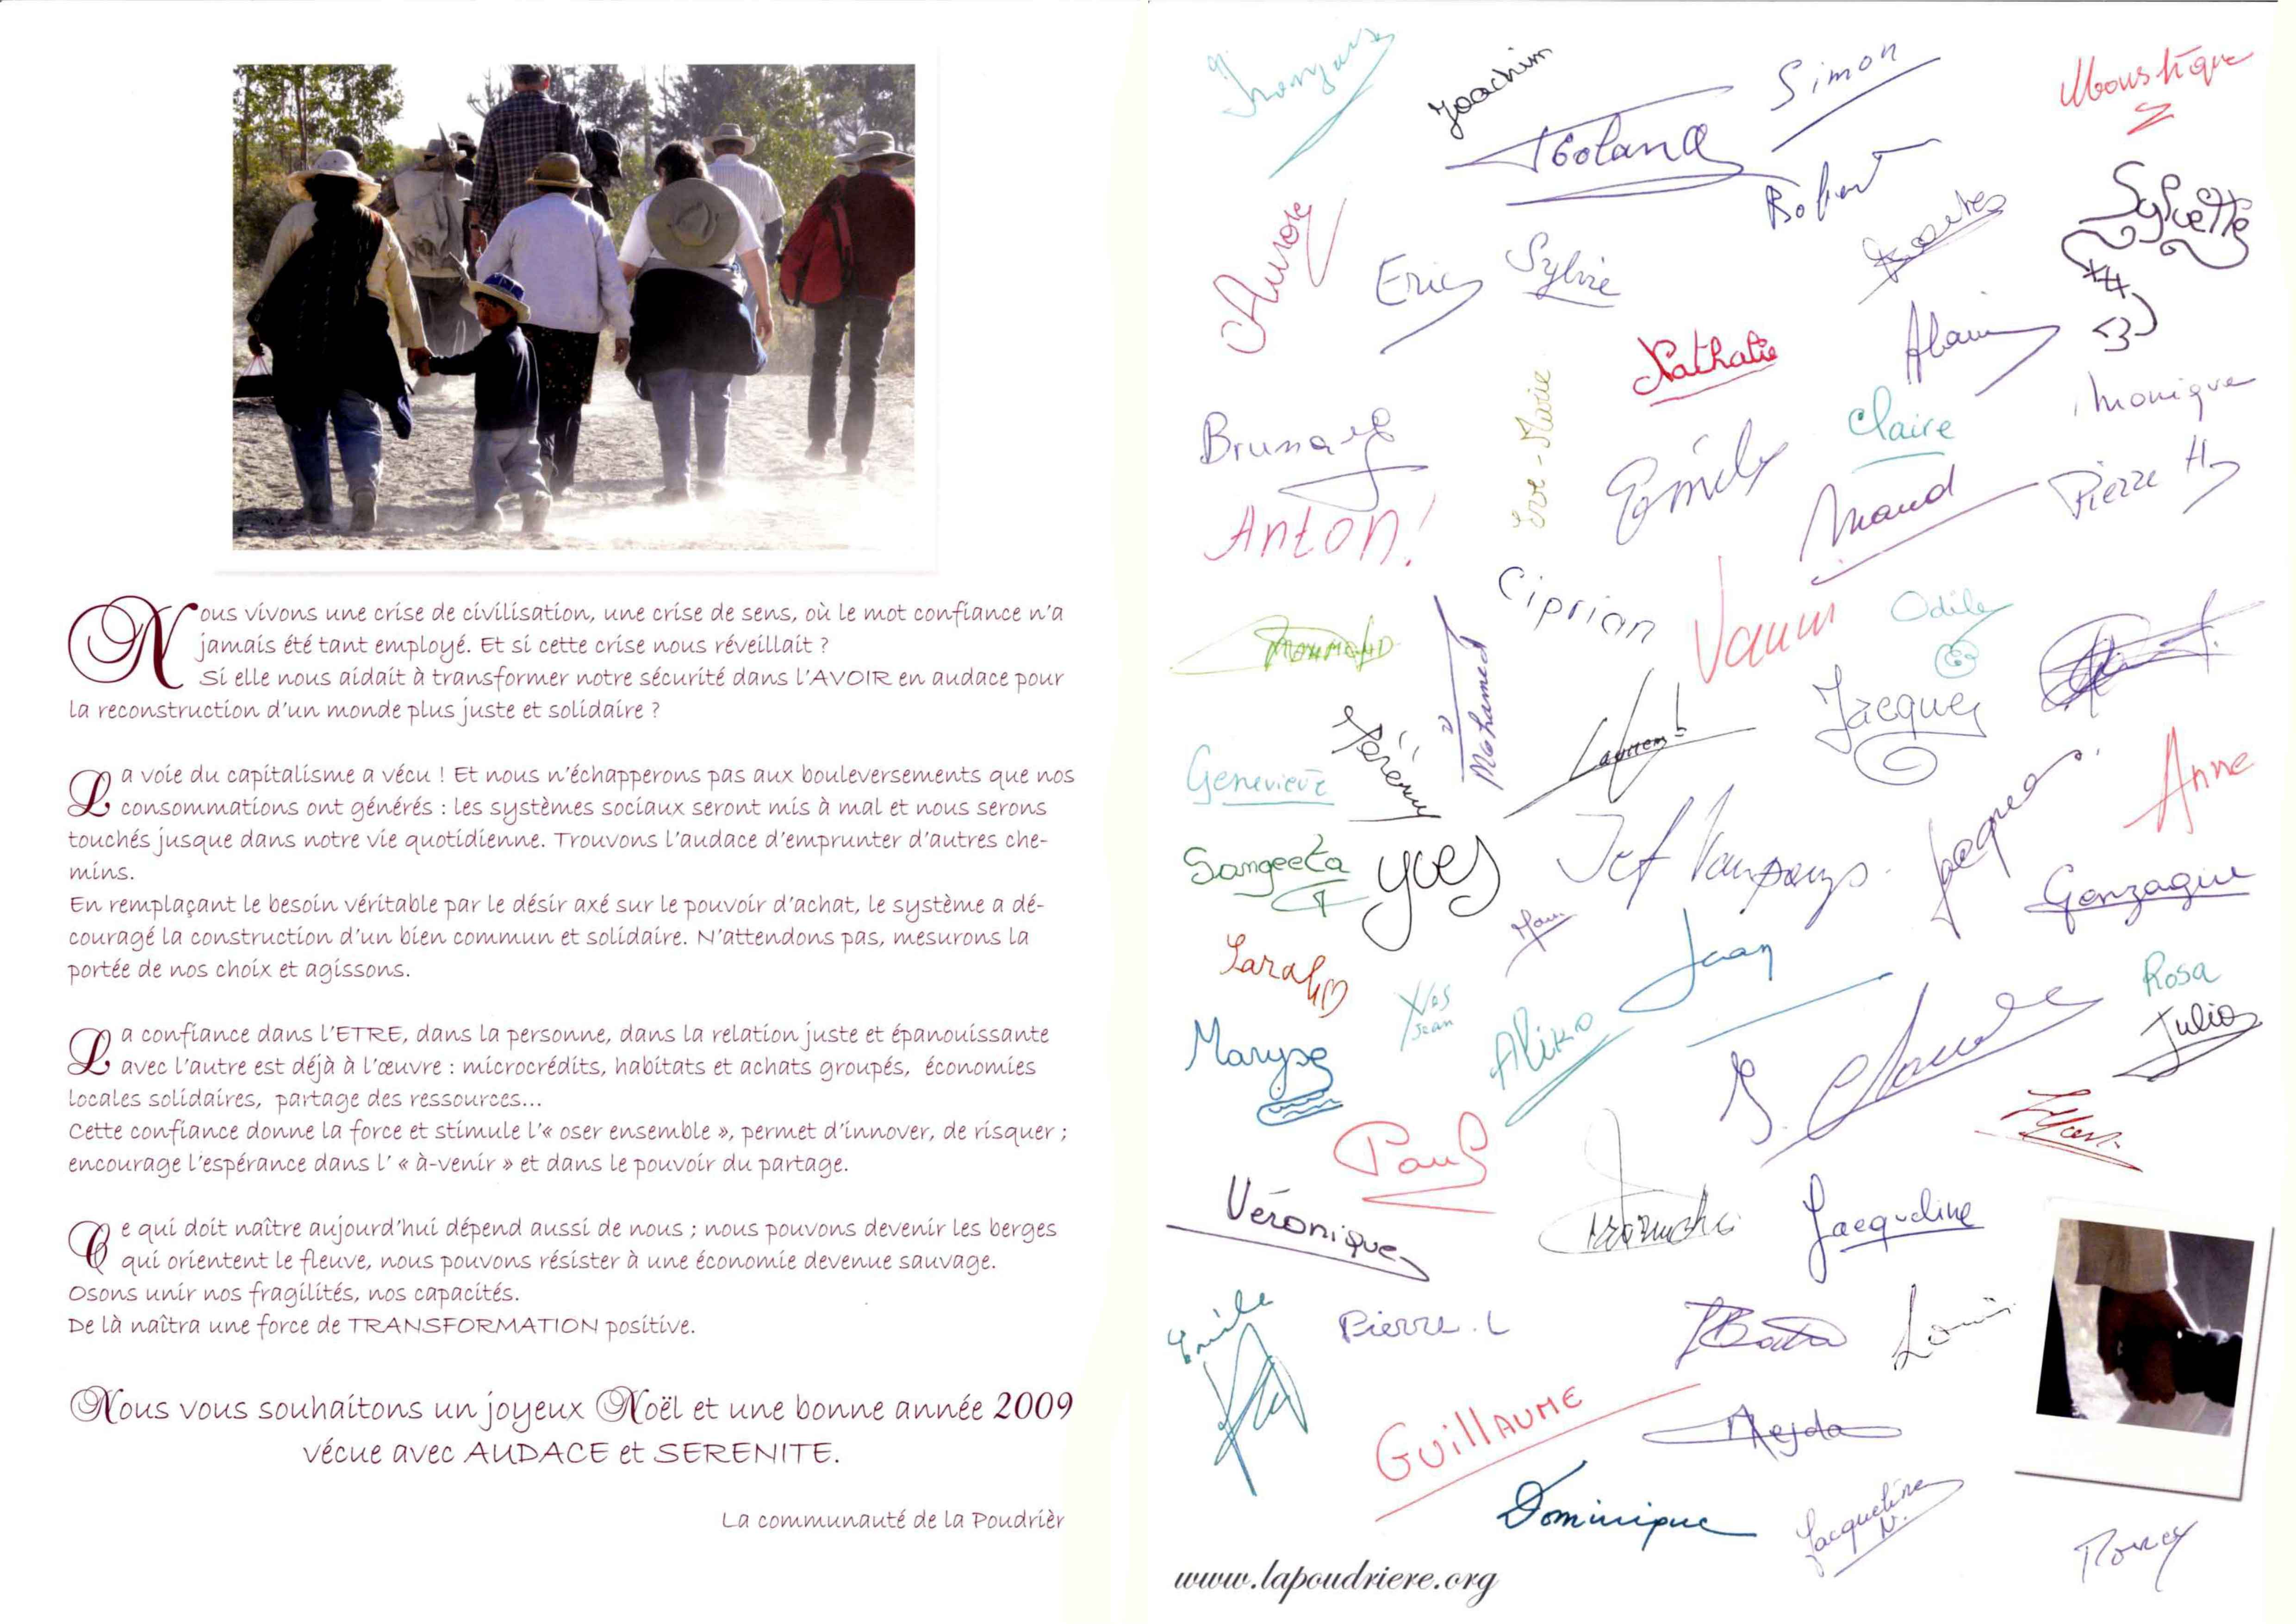 Nous vivons une crise de civilisation, une crise de sens, où le mot confiance n'a
jamais été tant employé. Et si cette crise nous réveillait ?
Si elle nous aidait à transformer notre sécurité dans l'AVOIR en audace pour
la reconstruction d'un monde plus juste et solidaire ?
La voie du capitalisme a vécu ! Et nous n'échapperons pas aux bouleversements que nos
consommations ont générés : les systèmes sociaux seront mis à mal et nous serons
touchés jusque dans notre vie quotidienne. Trouvons l'audace d'emprunter d'autres che-
mins.
En remplaçant le besoin véritable par le désir axé sur le pouvoir d'achat, le système a dé-
couragé la construction d'un bien commun et solidaire. N'attendons pas, mesurons la
portée de nos choix et agissons.
La confiance dans l'ETRE, dans la personne, dans la relation juste et épanouissante
avec l'autre est déjà à l'œuvre : microcrédits, habitats et achats groupés, économies
locales solidaires, partage des ressources...
Cette confiance donne la force et stimule l'« oser ensemble », permet d'innover, de risquer ;
encourage l'espérance dans l' « à-venir » et dans le pouvoir du partage.
Ce qui doit naître aujourd'hui dépend aussi de nous ; nous pouvons devenir les berges
qui orientent le fleuve, nous pouvons résister à une économie devenue sauvage.
Osons unir nos fragilités, nos capacités.
De là naîtra une force de TRANSFORMATION positive.
Nous vous souhaitons un joyeux Noël et une bonne année 2009
vécue avec AUDACE et SERENITE.
La communauté de la Poudrièr
Joachim
Simon
Moustique
Robert
Sylvette
Aurore
Eric
Sylvie
Nathalie
Alain
Monique
Claire
Eve-Marie
Anton!
Maud
Pierre H
Ciprian
Odile
Mohamed
Jacques
Jérémy
Laurent
Geneviève
Anne
Sangeeta
Yves
Jef
Jacques
Gonzague
Sarah
Jean
Rosa
Yves
Jean
Maryse
Aliko
Julio
Paul
Véronique
Jacqueline
Emile
Pierre. L
Louis
Guillaume
Nejda
Dominique
Jacqueline
N.
www.lapoudriere.org